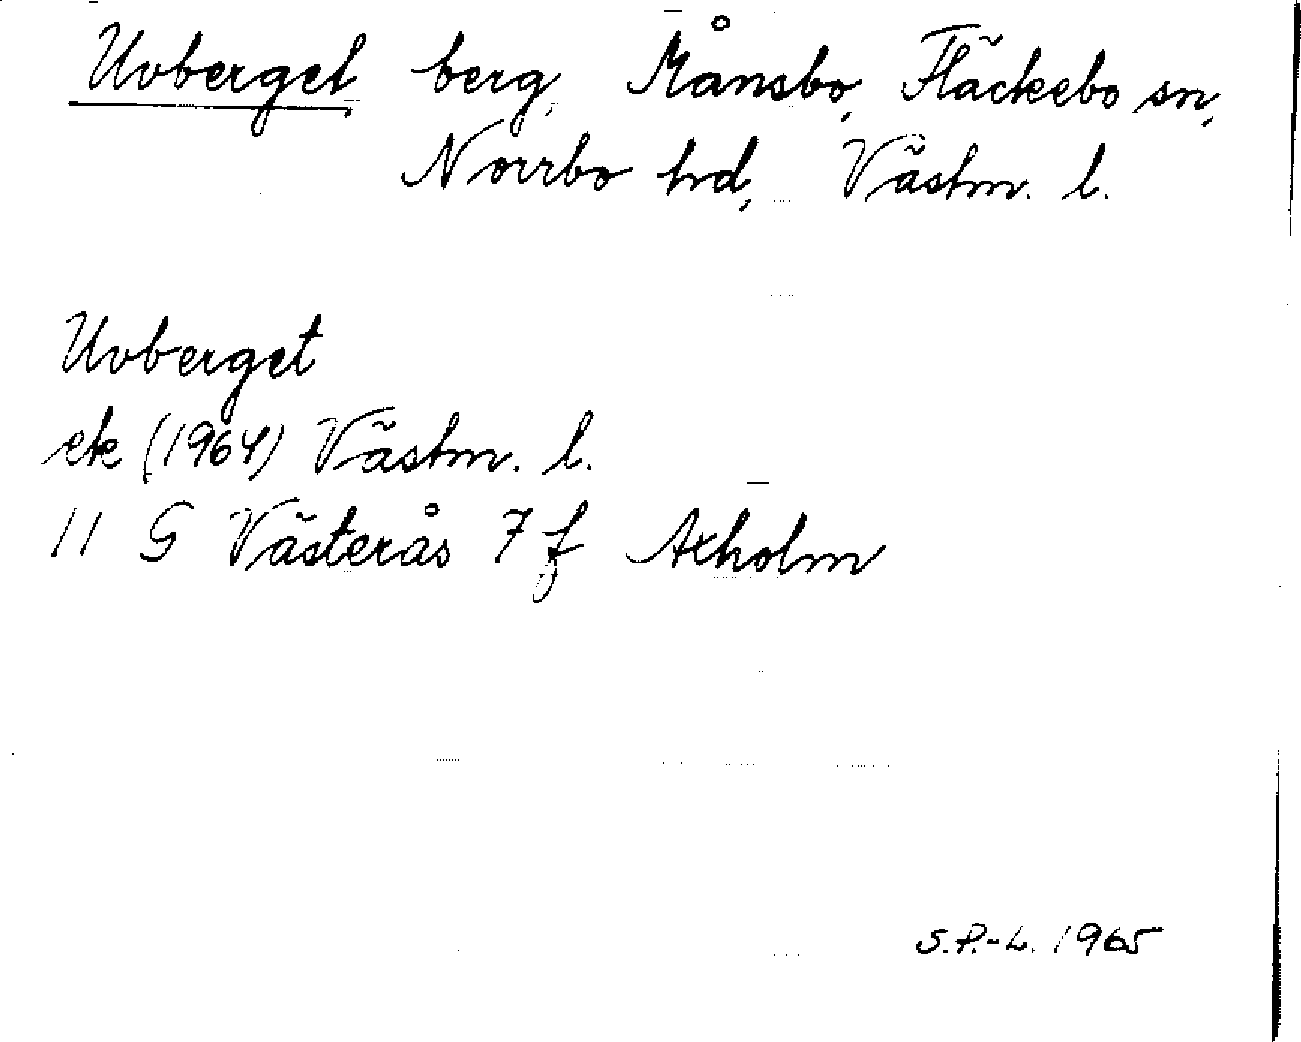 Uvberget, berg, Månsbo, Fläckebo sn,
Norrbo hd, Västm. l.
Uvberget
ek (1964) Västm. l.
11 G Västerås 7 f Axholm
S.P.-L. 1965